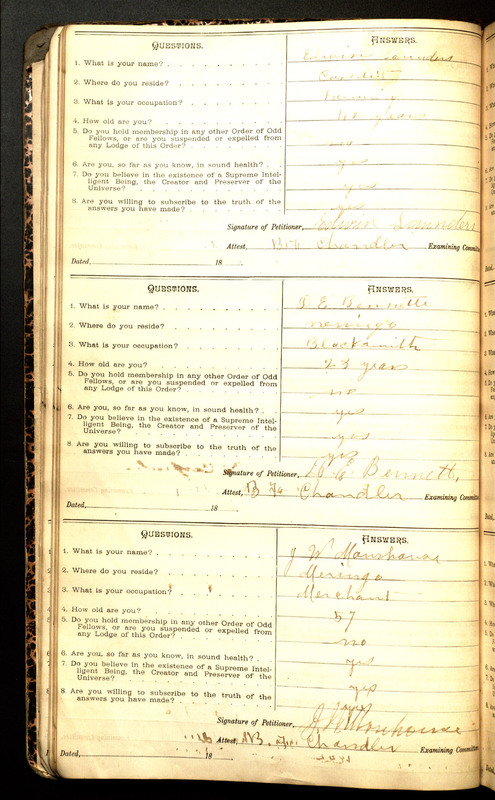 QUESTIONS. ANSWERS.
1. What is your name? Saunders
2. Where do you reside?
3. What is your occupation?
4. How old are you? years
5. Do you hold membership in any other Order of Odd
Fellows, or are you suspended or expelled from
any Lodge of this Order? no
6. Are you, so far as you know, in sound health? yes
7. Do you believe in the existence of a Supreme Intel-
ligent Being, the Creator and Preserver of the
Universe? yes
8. Are you willing to subscribe to the truth of the
answers you have made? yes
Signature of Petitioner, Edwin Saunders
Attest, Chandler Examining Committe
Dated, 18
QUESTIONS. ANSWERS.
1. What is your name? D E Bennett
2. Where do you reside? Meringo
3. What is your occupation? Blacksmith
4. How old are you? 23 years
5. Do you hold membership in any other Order of Odd
Fellows, or are you suspended or expelled from
any Lodge of this Order? no
6. Are you, so far as you know, in sound health? yes
7. Do you believe in the existence of a Supreme Intel-
ligent Being, the Creator and Preserver of the
Universe? yes
8. Are you willing to subscribe to the truth of the
answers you have made? yes
Signature of Petitioner, D. E. Bennett,
Attest, B Chandler Examining Committe
Dated, 18
QUESTIONS. ANSWERS.
1. What is your name? J W
2. Where do you reside? Meringo
3. What is your occupation? Merchant
4. How old are you? 57
5. Do you hold membership in any other Order of Odd
Fellows, or are you suspended or expelled from
any Lodge of this Order? no
6. Are you, so far as you know, in sound health? yes
7. Do you believe in the existence of a Supreme Intel-
ligent Being, the Creator and Preserver of the
Universe? yes
8. Are you willing to subscribe to the truth of the
answers you have made? yes
Signature of Petitioner,
Attest, Chandler Examining Committe
Dated, 18